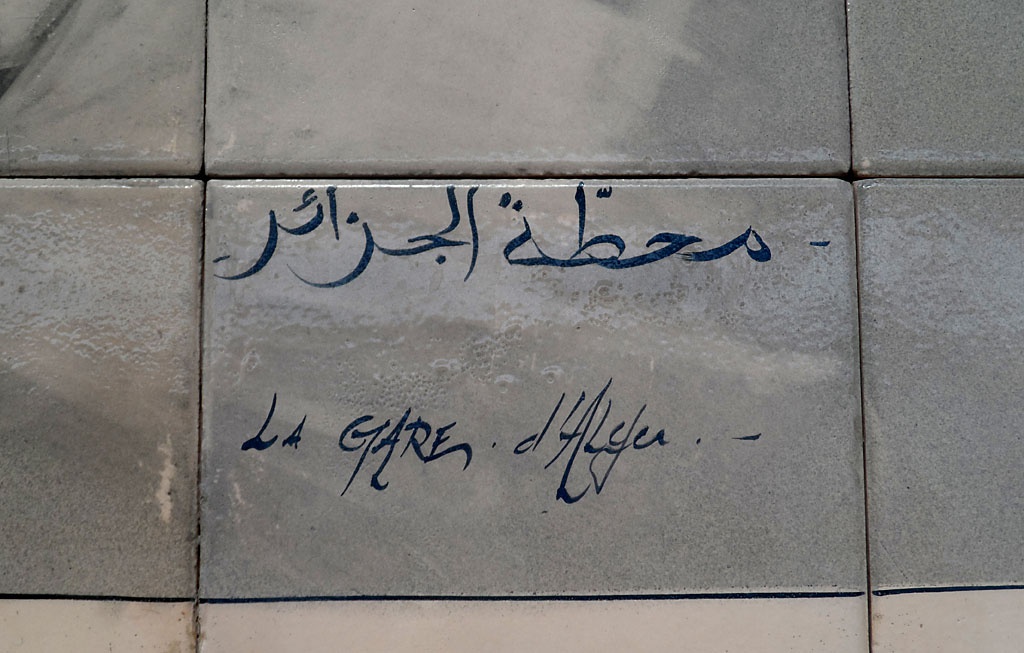 - محطّة الجزائر -
LA GARE . d'Alger . -